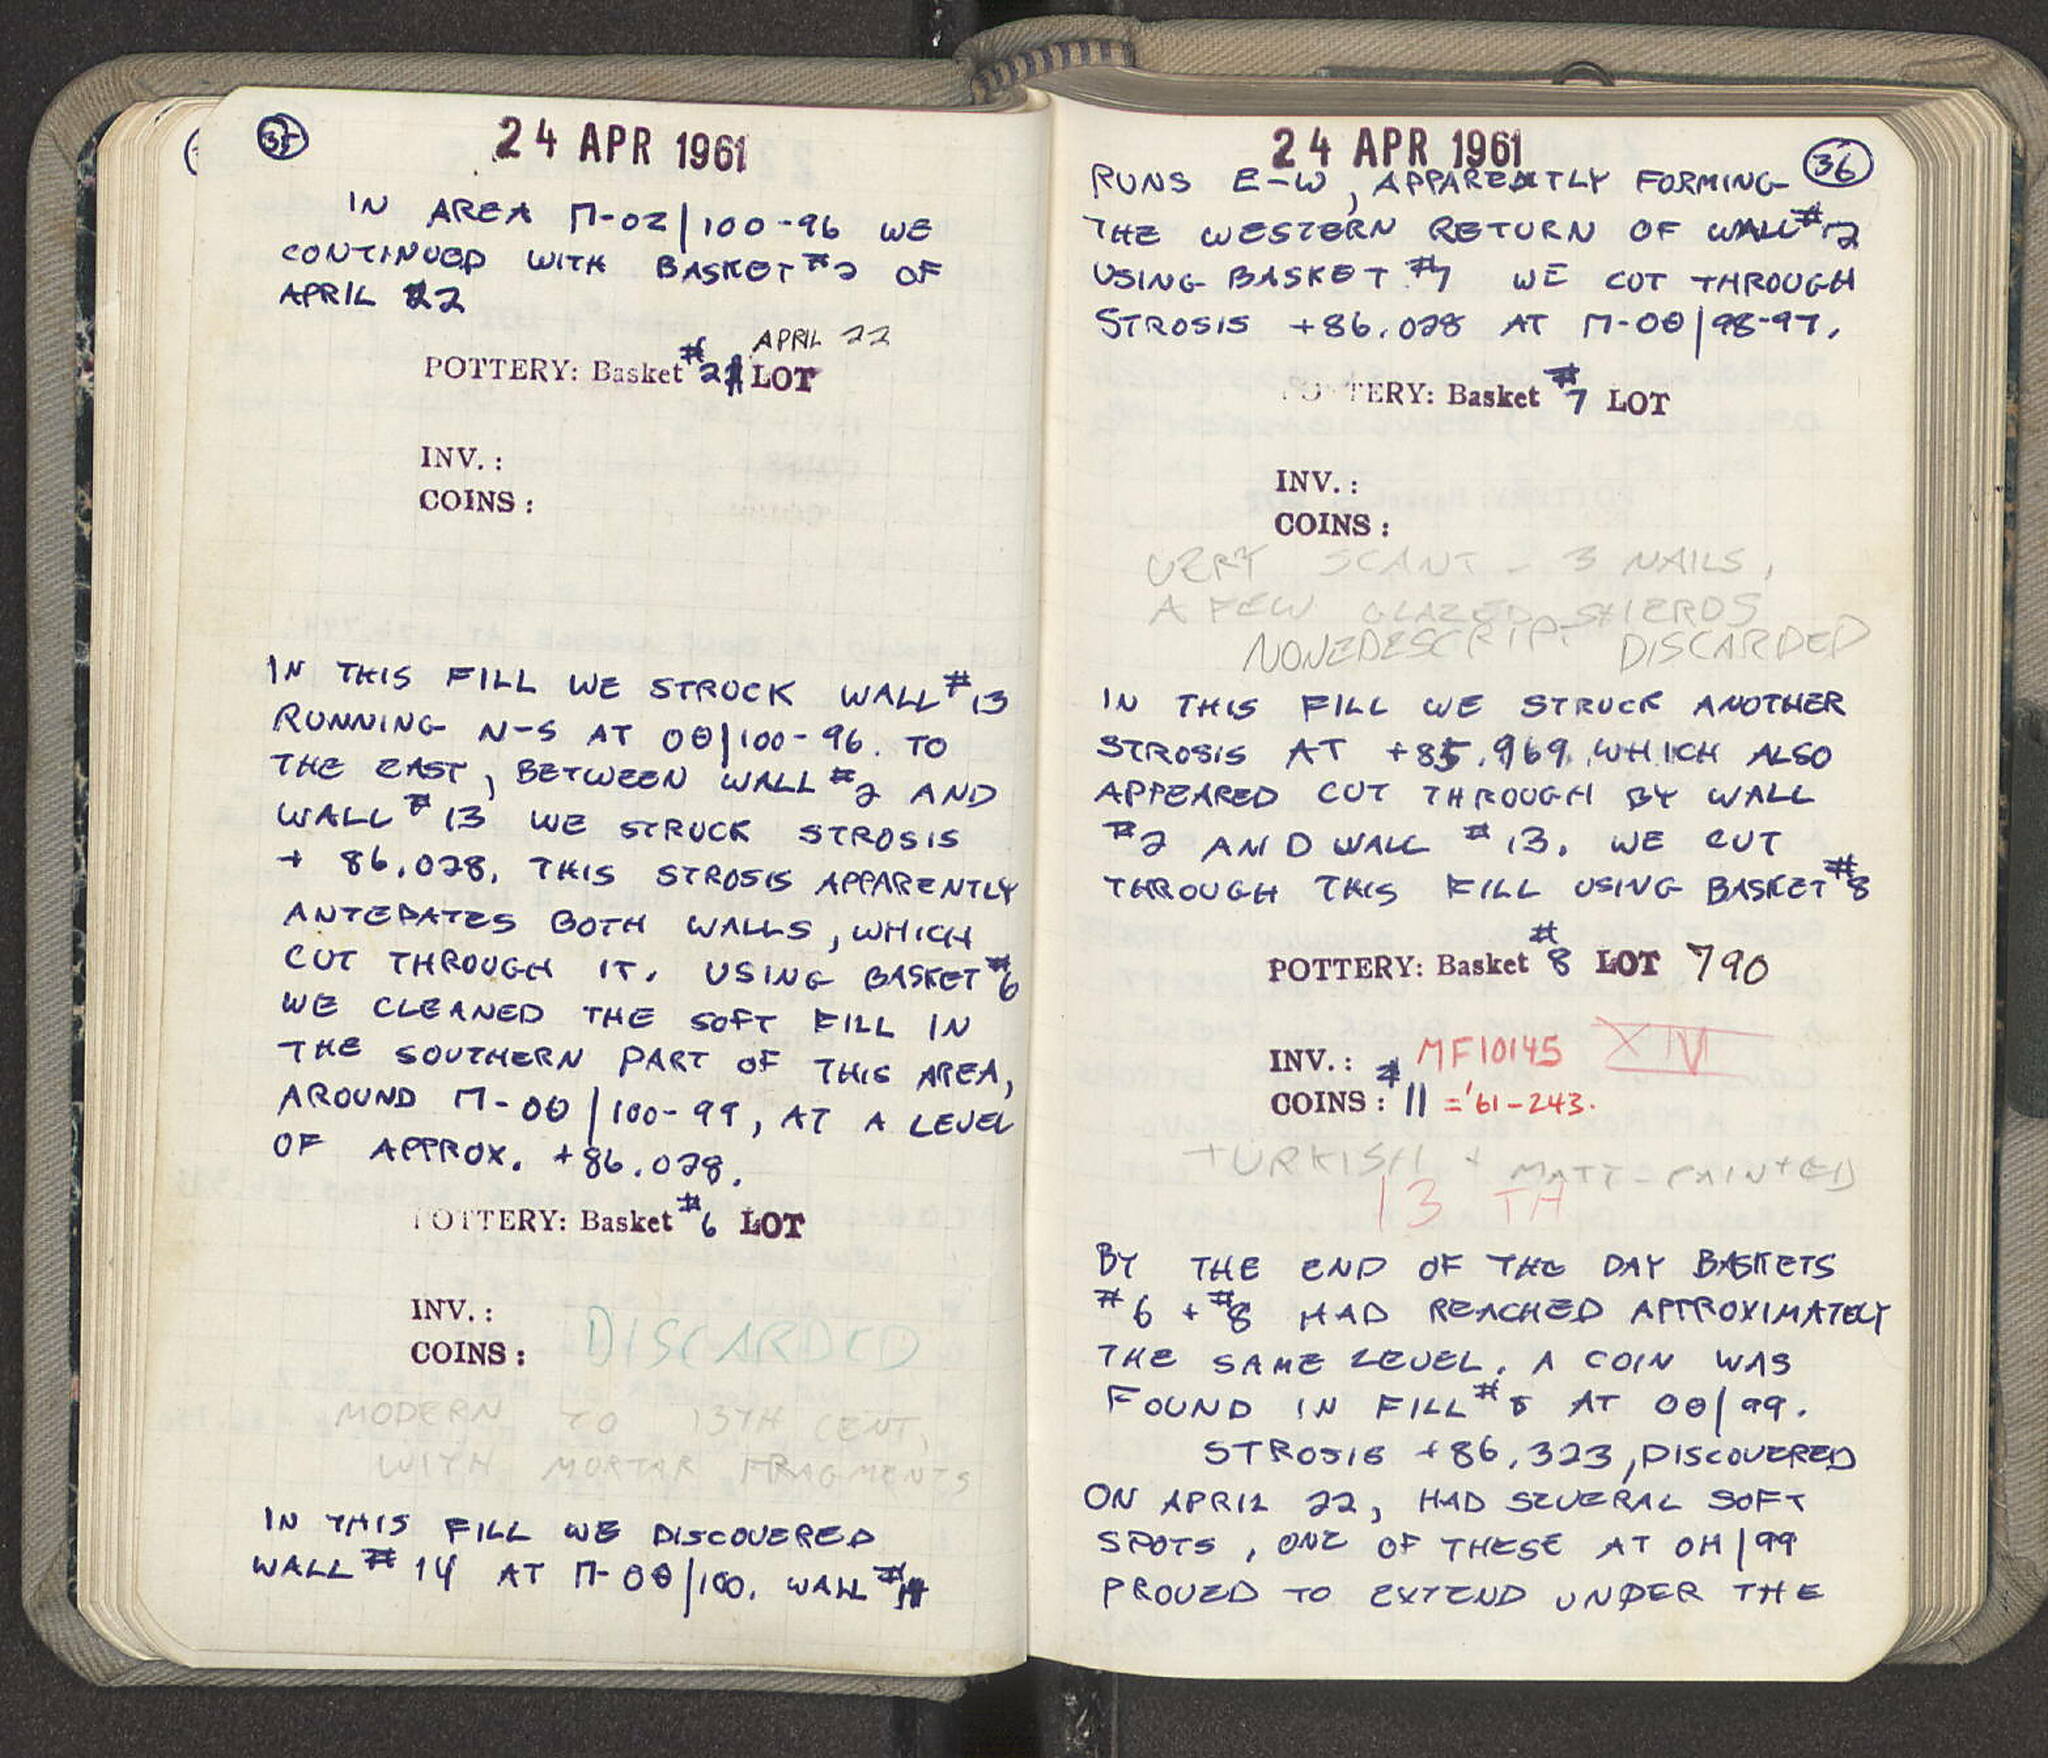 35
24 APR 1961
IN AREA Π-OZ/100-96 WE
CONTINUED WITH BASKET #2 OF
APRIL 22
APRIL 22
POTTERY: Basket #2 LOT
INV. :
COINS :
IN THIS FILL WE STRUCK WALL #13
RUNNING N-S AT OΘ/100-96. TO
THE EAST, BETWEEN WALL #2 AND
WALL #13 WE STRUCK STROSIS
+ 86.028. THIS STROSIS APPARENTLY
ANTEDATES BOTH WALLS, WHICH
CUT THROUGH IT. USING BASKET #6
WE CLEANED THE SOFT FILL IN
THE SOUTHERN PART OF THIS AREA,
AROUND Π-OΘ/100-99, AT A LEVEL
OF APPROX. +86.028.
POTTERY: Basket #6 LOT
INV. :
DISCARDED
COINS :
MODERN TO 13TH CENT,
WITH MORTAR FRAGMENTS
IN THIS FILL WE DISCOVERED
WALL #14 AT Π-OΘ/100. WALL #14
24 APR 1961
36
RUNS E-W, APPARENTLY FORMING
THE WESTERN RETURN OF WALL #12
USING BASKET #7 WE CUT THROUGH
STROSIS +86.028 AT Π-OΘ/98-97.
POTTERY: Basket #7 LOT
INV. :
COINS :
VERY SCANT - 3 NAILS,
A FEW GLAZED SHERDS
NONEDESCRIPT DISCARDED
IN THIS FILL WE STRUCK ANOTHER
STROSIS AT +85.969 WHICH ALSO
APPEARED CUT THROUGH BY WALL
#2 AND WALL #13. WE CUT
THROUGH THIS FILL USING BASKET #8
POTTERY: Basket #8 LOT 790
INV. : MF10145 XIV
COINS : #11 = '61-243.
TURKISH + MATT-PAINTED
13 TH
BY THE END OF THE DAY BASKETS
#6 + #8 HAD REACHED APPROXIMATELY
THE SAME LEVEL. A COIN WAS
FOUND IN FILL #8 AT OΘ/99.
STROSIS +86.323, DISCOVERED
ON APRIL 22, HAD SEVERAL SOFT
SPOTS, ONE OF THESE AT OH/99
PROVED TO EXTEND UNDER THE